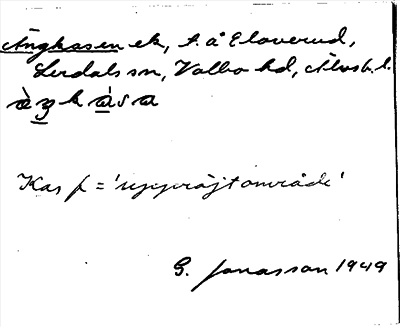 Ängkasen ek, t. å Eloverud,
Lerdals sn, Valbo hd, Älvsb. l.
ä̀ŋkása
Kas f = 'uppröjt område'
G. Jonasson 1949